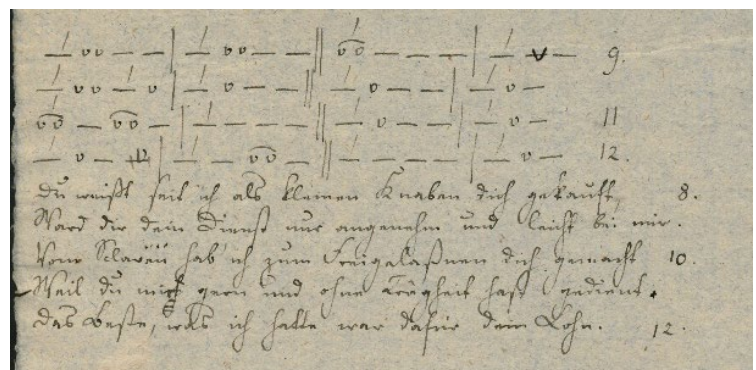 — vv — — | — vv — — || vv — — — | — v — 9.
— vv — v | — v — || — v — — | — v —
vv — vv — | — — — — || — v — — | — v — 11
— v — | — — vv — || — — — — | — v — 12.
Du weißt seit ich als kleinen Knaben dich gekauft, 8.
Ward dir dein Dienst nur angenehm und leicht bei mir.
Vom Sclaven hab' ich zum Freigelaßnen dich gemacht 10.
Weil du mir gern und ohne Trägheit hast gedient.
Das Beste, was ich hatte war dafür dein Lohn. 12.